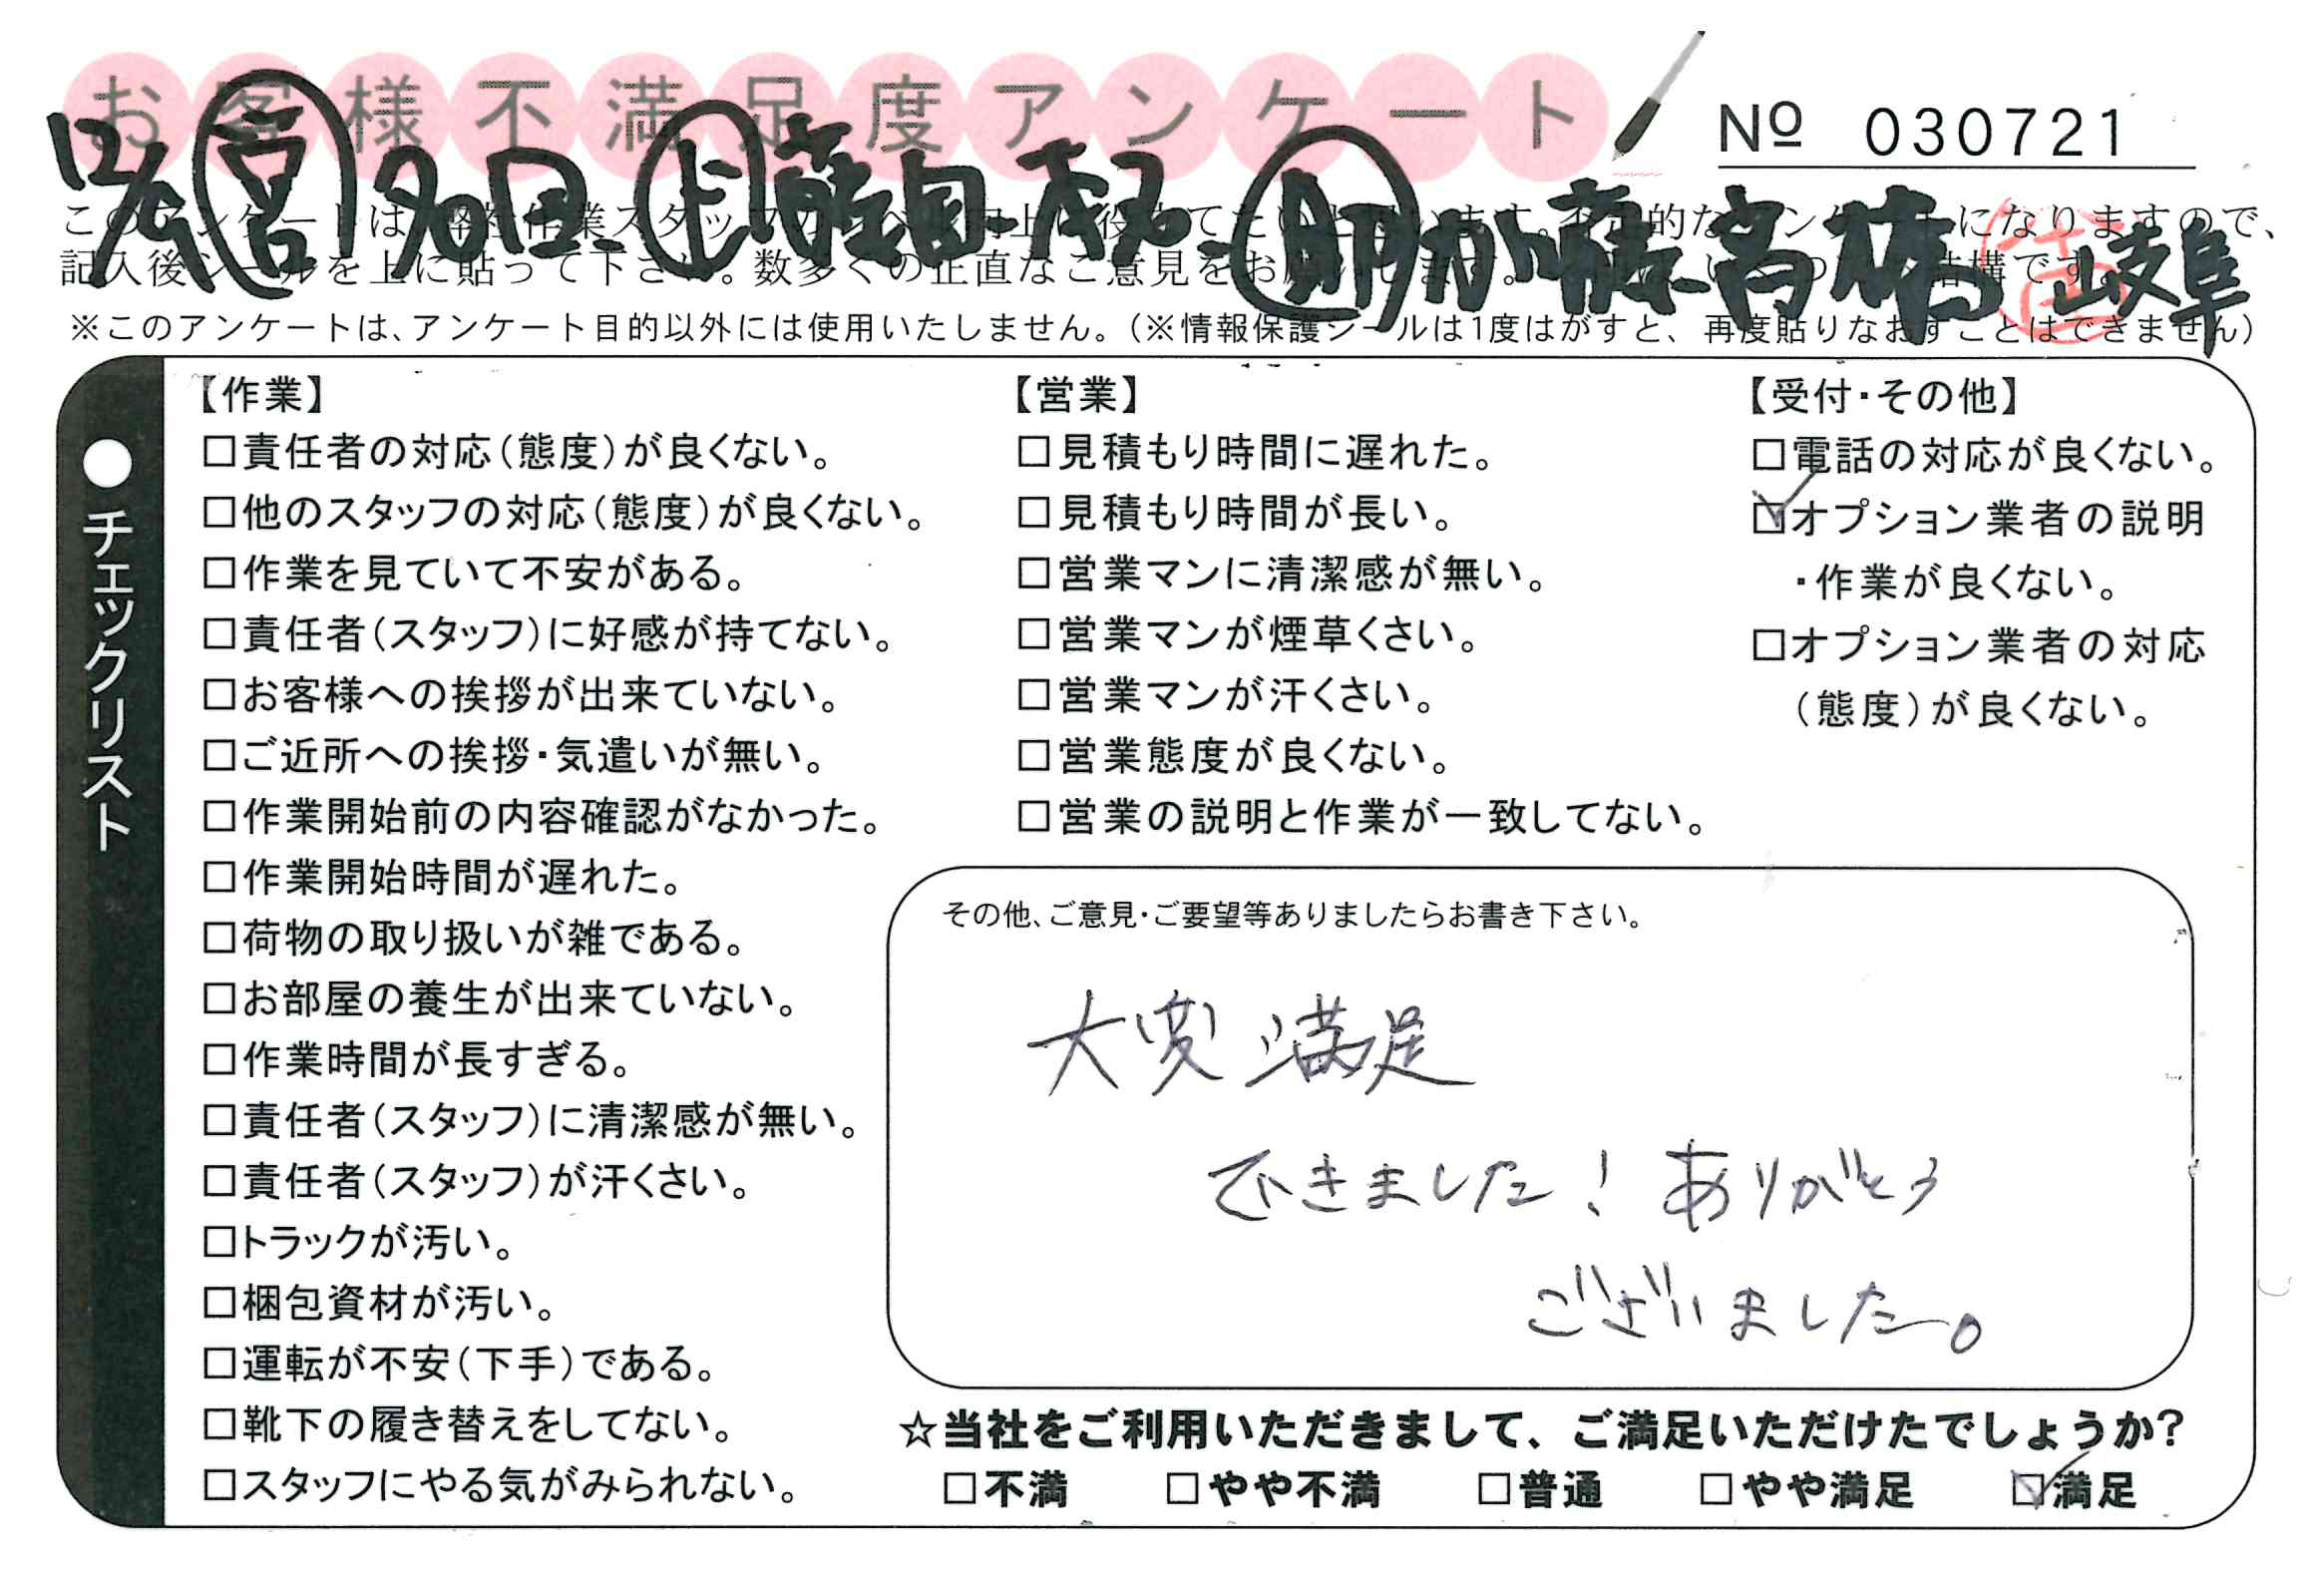 お客様不満足度アンケート
№ 030721
12/9 営 タ口田 上 藤田 本松 助 加藤 高橋 岐阜
このアンケートは、弊社作業スタッフの
記入後シールを上に貼って下さい。数多くの正直なご意見をお願いします。
※このアンケートは、アンケート目的以外には使用いたしません。(※情報保護シールは1度はがすと、再度貼りなおすことはできません)
●チェックリスト
【作業】
□責任者の対応(態度)が良くない。
□他のスタッフの対応(態度)が良くない。
□作業を見ていて不安がある。
□責任者(スタッフ)に好感が持てない。
□お客様への挨拶が出来ていない。
□ご近所への挨拶・気遣いが無い。
□作業開始前の内容確認がなかった。
□作業開始時間が遅れた。
□荷物の取り扱いが雑である。
□お部屋の養生が出来ていない。
□作業時間が長すぎる。
□責任者(スタッフ)に清潔感が無い。
□責任者(スタッフ)が汗くさい。
□トラックが汚い。
□梱包資材が汚い。
□運転が不安(下手)である。
□靴下の履き替えをしてない。
□スタッフにやる気がみられない。
【営業】
□見積もり時間に遅れた。
□見積もり時間が長い。
□営業マンに清潔感が無い。
□営業マンが煙草くさい。
□営業マンが汗くさい。
□営業態度が良くない。
□営業の説明と作業が一致してない。
【受付・その他】
□電話の対応が良くない。
☑オプション業者の説明
・作業が良くない。
□オプション業者の対応
(態度)が良くない。
その他、ご意見・ご要望等ありましたらお書き下さい。
大変満足
できました！ありがとう
ございました。
☆当社をご利用いただきまして、ご満足いただけたでしょうか?
□不満 □やや不満 □普通 □やや満足 ☑満足